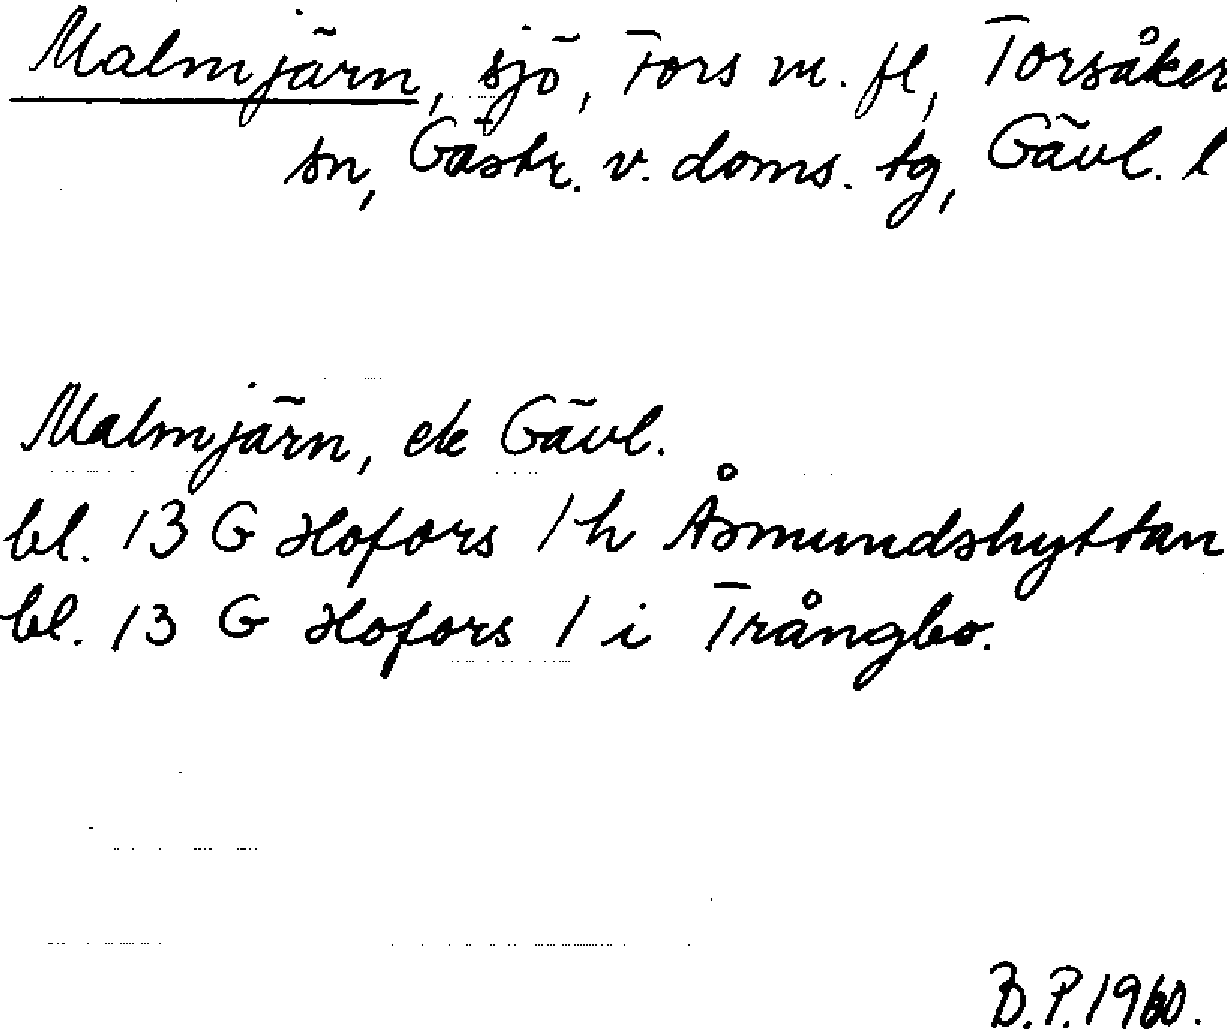 Malmjärn, sjö, Fors m. fl, Torsåker
sn, Gästr. v. doms. tg, Gävl. l
Malmjärn, ek Gävl.
bl. 13 G Hofors 1 h Åsmundshyttan
bl. 13 G Hofors 1 i Trångbo.
B.P. 1960.